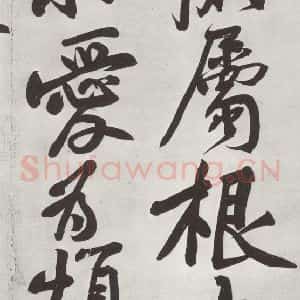 屬根
愛為煩
Shufawang.CN